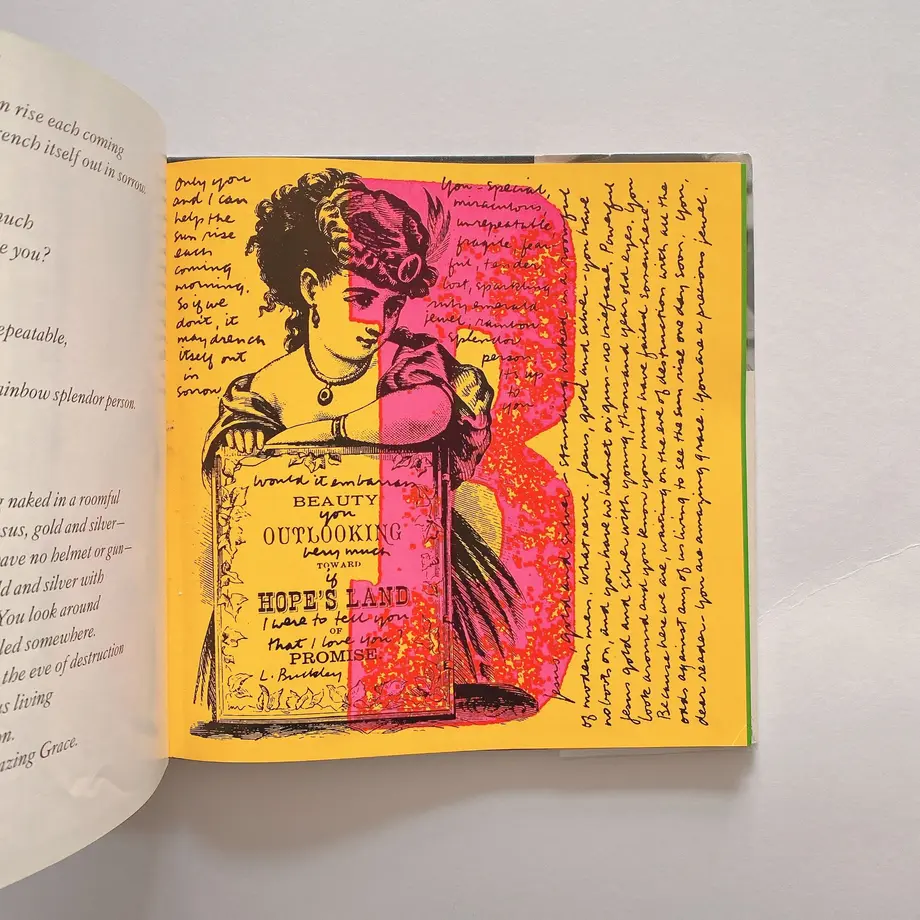 n rise each coming
rench itself out in sorrow.
uch
e you?
epeatable,
ainbow splendor person.
g naked in a roomful
sus, gold and silver—
ave no helmet or gun—
ld and silver with
You look around
iled somewhere.
the eve of destruction
us living
on.
azing Grace.
Only you
and I can
help the
sun rise
each
coming
morning.
So if we
don't, it
may drench
itself out
in
sorrow
You–special
miraculous
unrepeatable
fragile fear
ful, tender
lost, sparkling
ruby emerald
jewel, rainbow
splendor
person.
It's up
to
you
Would it embarrass
BEAUTY
you
OUTLOOKING
very much
TOWARD
if
HOPE'S LAND
I were to tell you
OF
that I love you?
PROMISE.
L. Buckley
standing naked in a roomful
of modern men. Whatever jesus, gold and silver–you have
no boots on, and you have no helmet or gun–no briefcase, Powerful
jesus gold and silver with young, thousand year old eyes. You
look around and you know you must have failed somewhere.
Because here we are, waiting on the eve of destruction with all the
odds against any of us living to see the sun rise one day soon. You,
dear reader–You're amazing grace. You are a precious jewel.